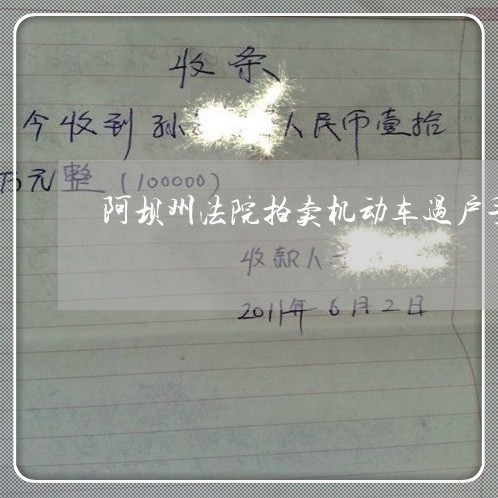 收条
今收到孙 人民币壹拾
万元整（100000）
阿坝州法院拍卖机动车过户
收款人
2011年6月2日